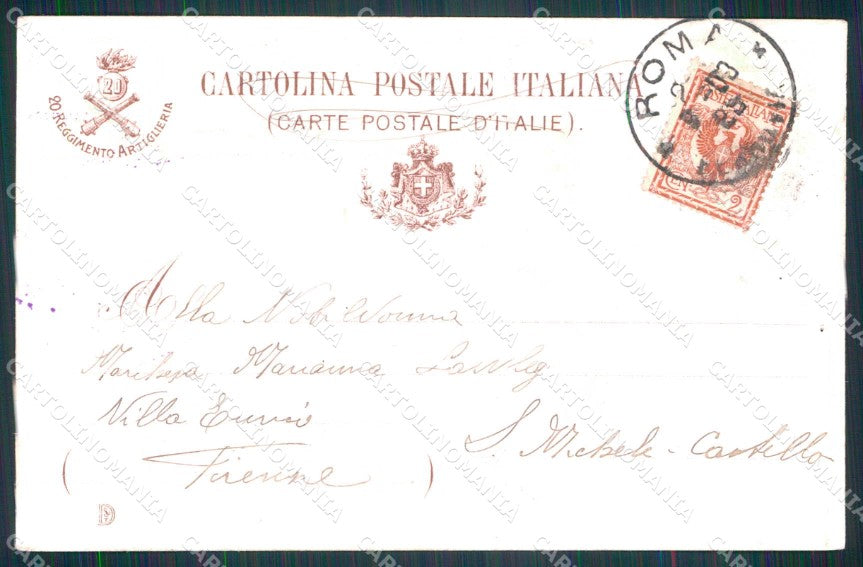 20
20º REGGIMENTO ARTIGLIERIA
CARTOLINA POSTALE ITALIANA
(CARTE POSTALE D'ITALIE).
ROMA
2
Alla Nobildonna
Marchesa Marianna
Villa
S. Michele - Castello
(Firenze)
D
CARTOLINOMANIA